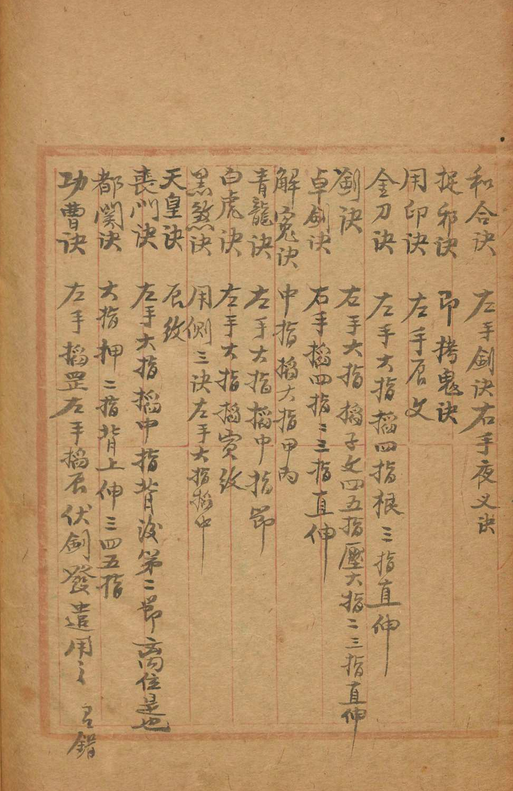 和合诀 左手劍诀右手夜义诀
捉邪诀 即拷鬼诀
用印诀 左手辰文
金刀诀 左手大指搯四指根二三指直伸
劍诀 右手大指搯子文四五指壓大指二三指直伸
卓劍诀 右手搯四指二三指直伸
解寃诀 中指搯大指甲内
青龍诀 左手大指搯中指節
白虎诀 左手大指搯寅紋
黑煞诀 用側三诀左手大指搯中
天皇诀 辰紋
喪门诀 左手大指搯中指背後第二節离位是也
都関诀 大指押二指背上伸三四五指
功曹诀 左手搯罡左手搯辰伏劍發遣用之